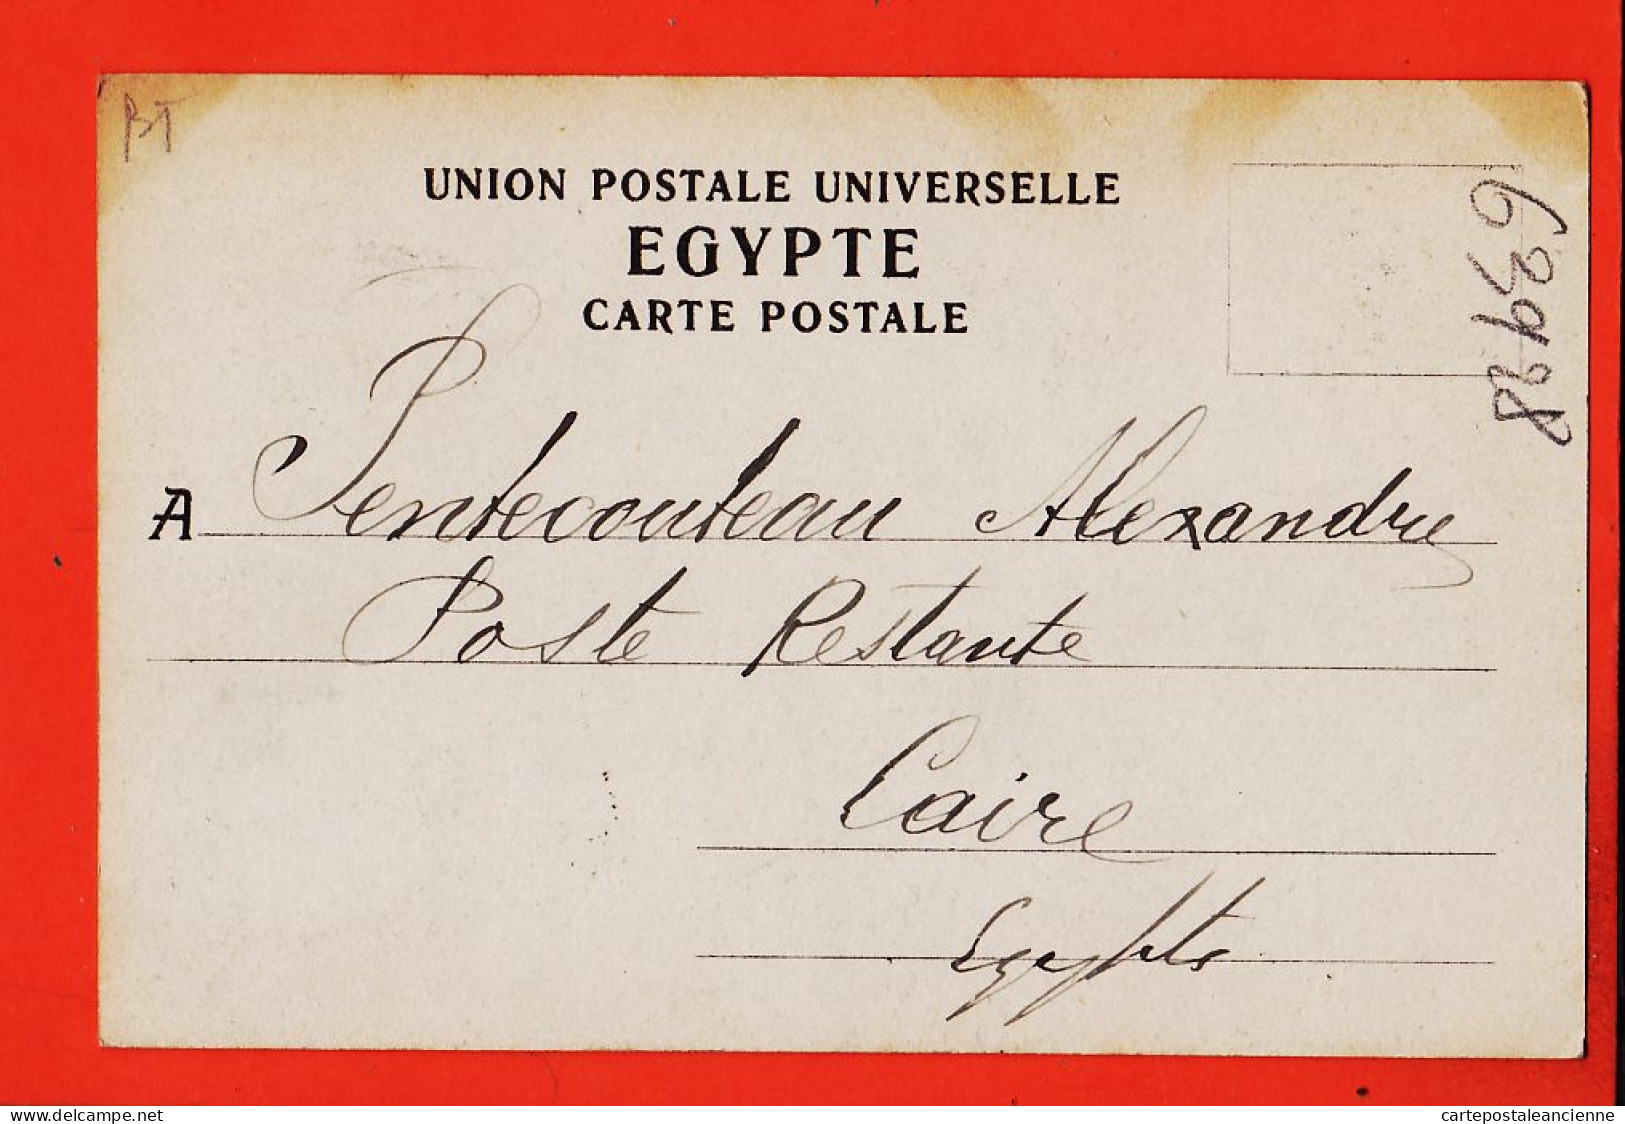 BT
UNION POSTALE UNIVERSELLE
EGYPTE
CARTE POSTALE
A Pentecouteau Alexandre
Poste Restante
Caire
Egypte
delcampe.net
cartepostaleancienne